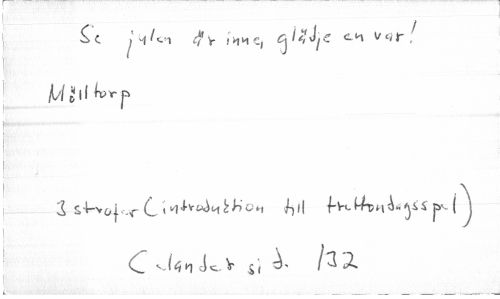 Se julen är inne, glädje en var!
Mölltorp
3 strofer (introduktion till trettondagsspel)
Celander sid. 132